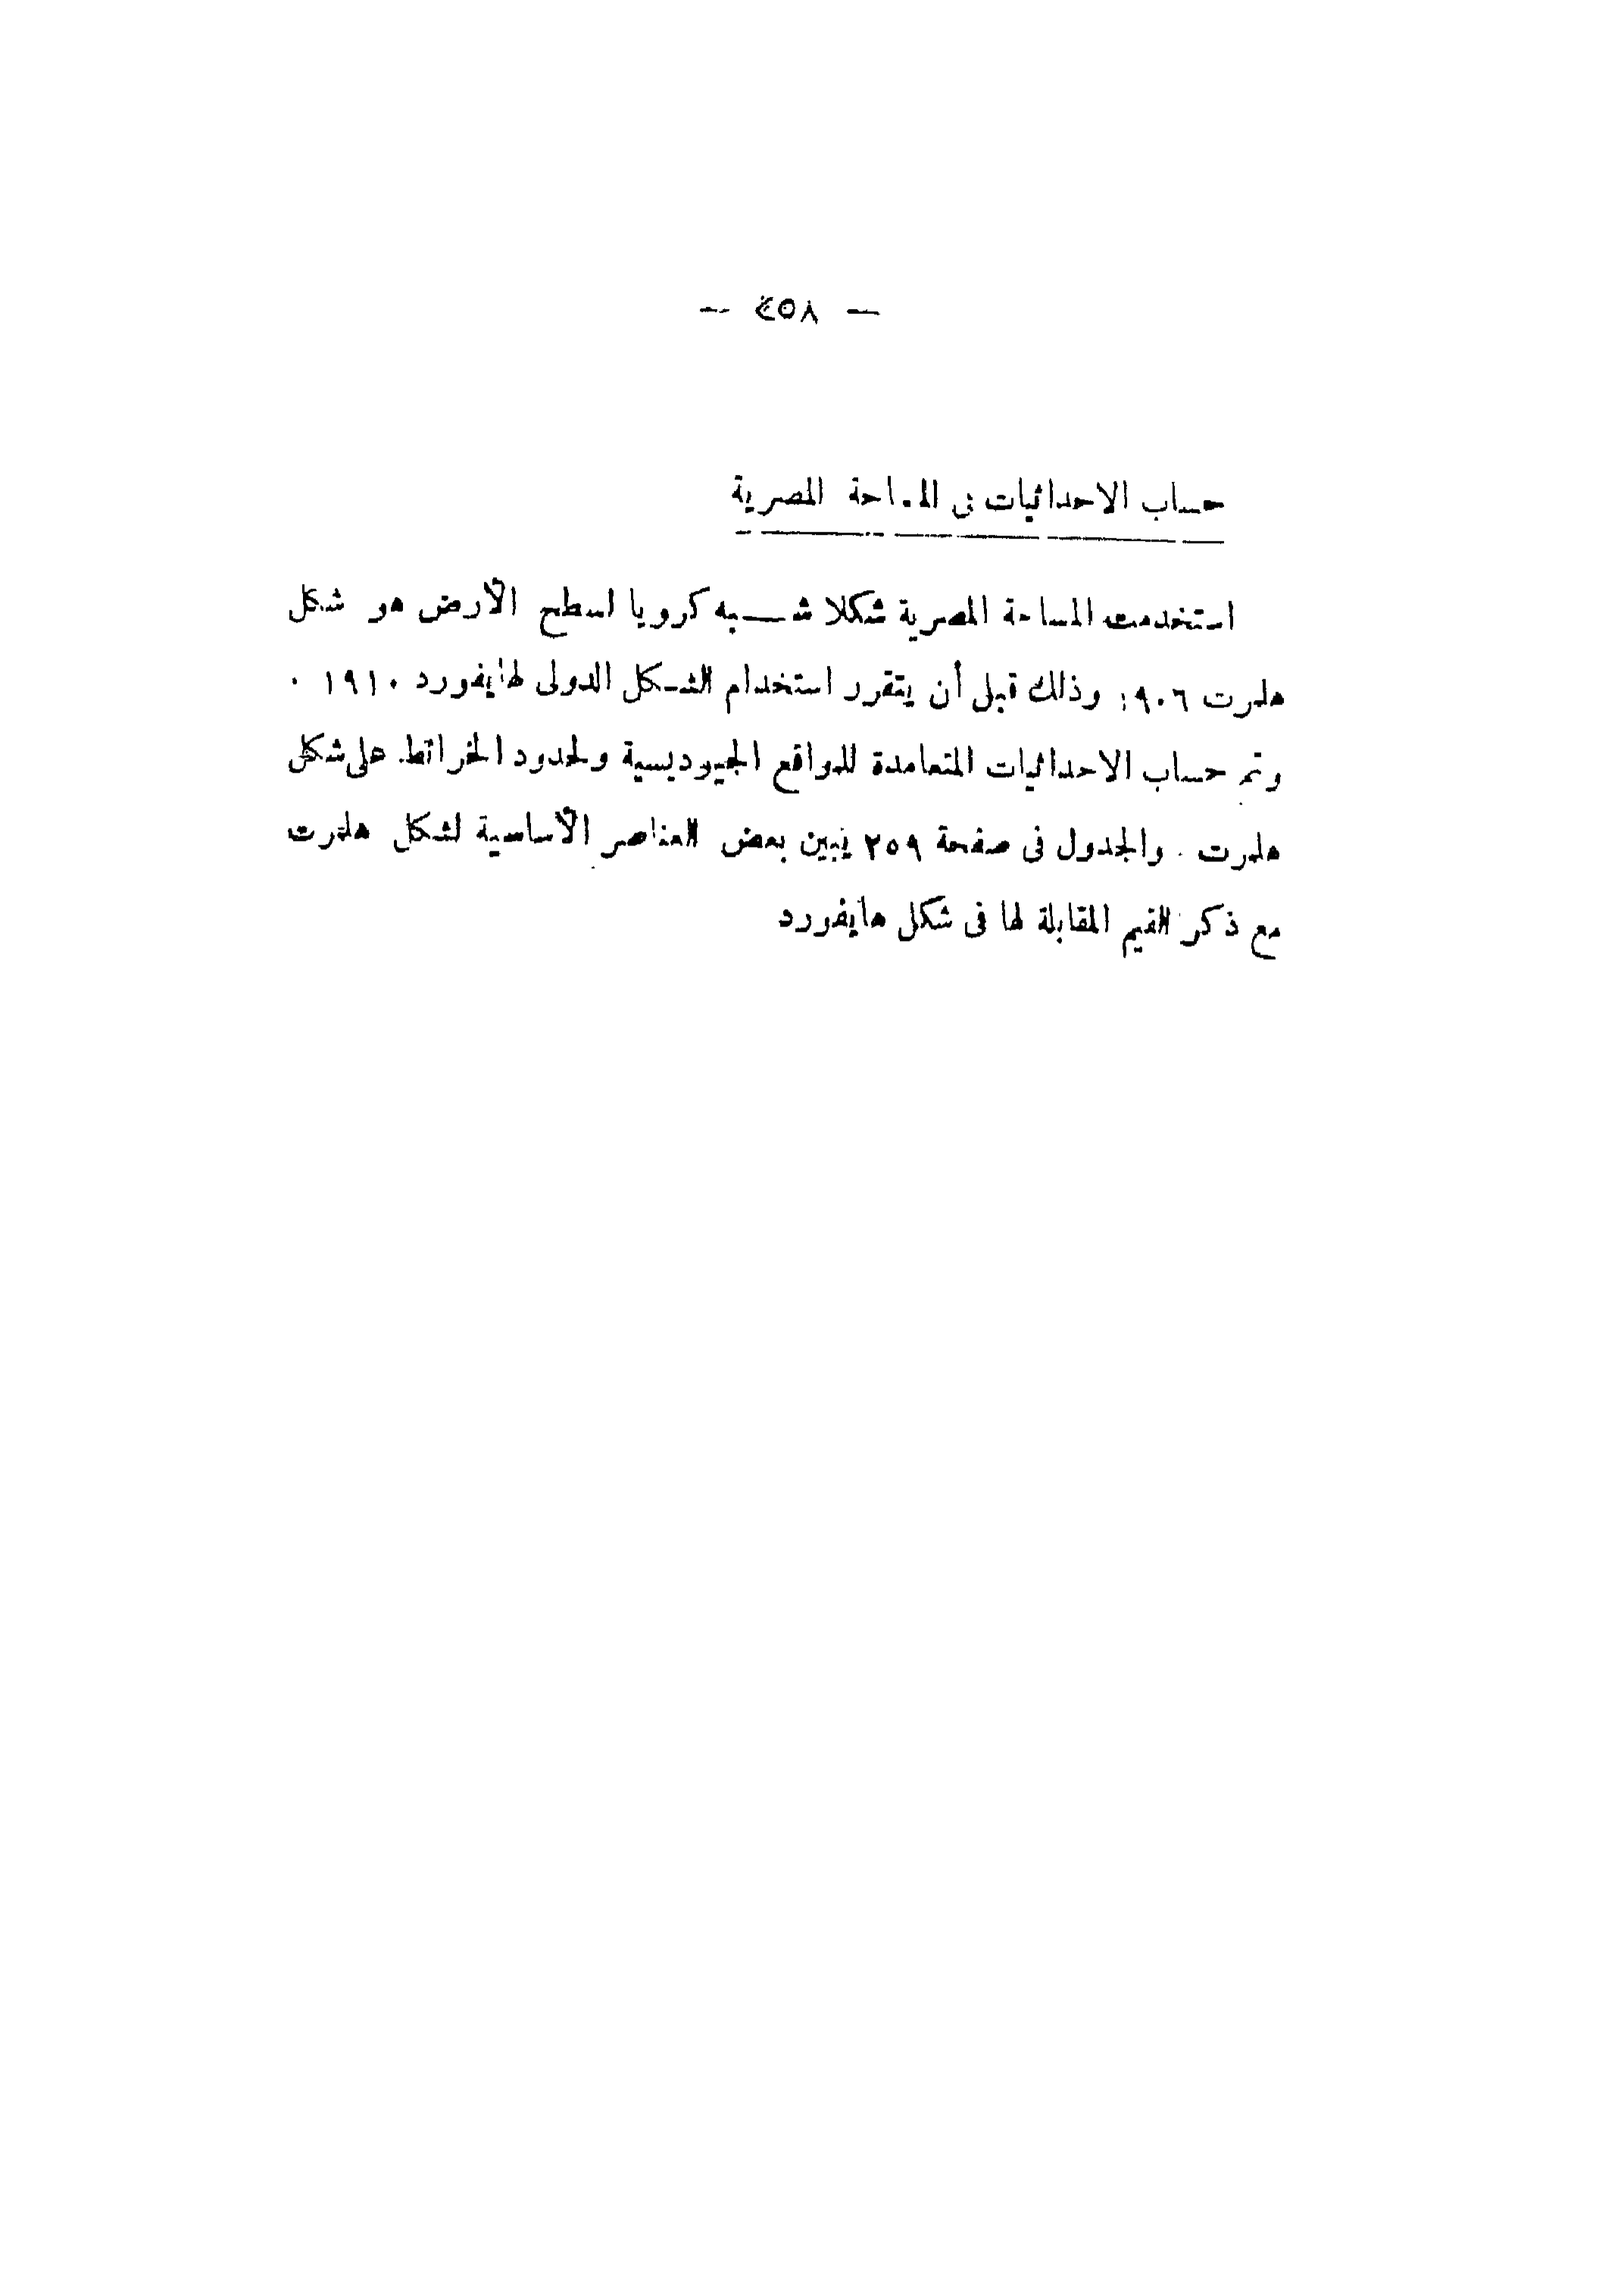 — ٢٥٨ —
حساب الاحداثيات فى المساحة المصرية
استخدمت المساحة المصرية شكلا شبه كرويا لسطح الأرض هو شكل
هلمرت ١٩٠٦ وذلك قبل أن يتقرر استخدام الشكل الدولى لهايفورد ١٩١٠ .
وتم حساب الاحداثيات المتعامدة للمواقع الجيوديسية ولحدود الخرائط على شكل
هلمرت . والجدول فى صفحة ٢٥٩ يبين بعض العناصر الأساسية لشكل هلمرت
مع ذكر القيم المقابلة لها فى شكل هايفورد